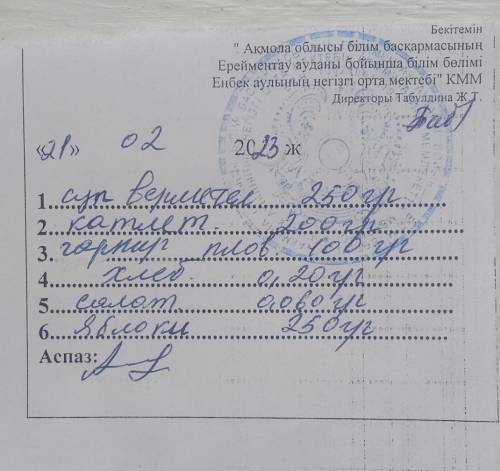 Бекітемін
" Ақмола облысы білім басқармасының
Ерейментау ауданы бойынша білім бөлімі
Еңбек аулының негізгі орта мектебі" КММ
Директоры Табулдина Ж Т.
«21» 02 2023 ж
1. суп вермешел 250 гр
2. катлет. 200 гр
3. гарнир плов 100 гр
4. хлеб 0,20 гр
5. салат 0,060 гр
6. яблоки 250 гр
Аспаз: